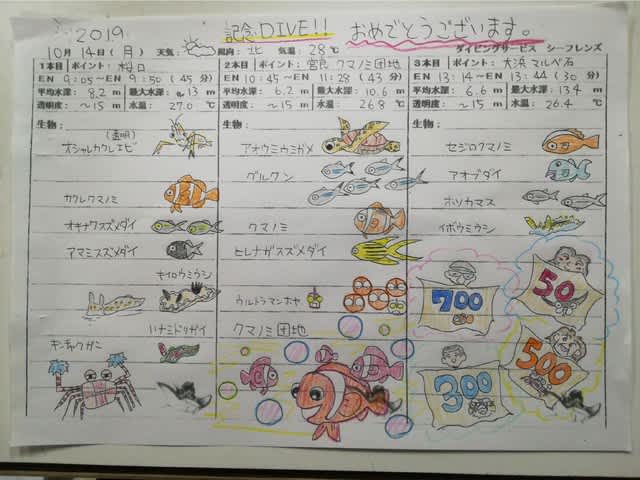 2019 記念DIVE!! おめでとうございます。
10月14日(月) 天気: 風向: 北 気温: 28℃ ダイビングサービス シーフレンズ
1本目 ポイント: 桜口
EN 9:05～EN 9:50 (45分)
平均水深: 8.2 m 最大水深: 13 m
透明度: ～15 m 水温: 27.0℃
生物:
(透明)
オシャレカクレエビ
カクレクマノミ
オキナワスズメダイ
アマミスズメダイ
キイロウミウシ
ハナミドリガイ
キンチャクガニ
2本目 ポイント: 宮良 クマノミ団地
EN 10:45～EN 11:28 (43分)
平均水深: 6.2 m 最大水深: 10.6 m
透明度: ～15 m 水温: 26.8℃
生物:
アオウミウミガメ
グルクン
クマノミ
ヒレナガスズメダイ
ウルトラマンホヤ
クマノミ団地
3本目 ポイント: 大浜 マルベ石
EN 13:14～EN 13:44 (30分)
平均水深: 6.6 m 最大水深: 13.4 m
透明度: ～15 m 水温: 26.4℃
生物:
セジロクマノミ
アオブダイ
ホソカマス
イボウミウシ
700
50
300
500